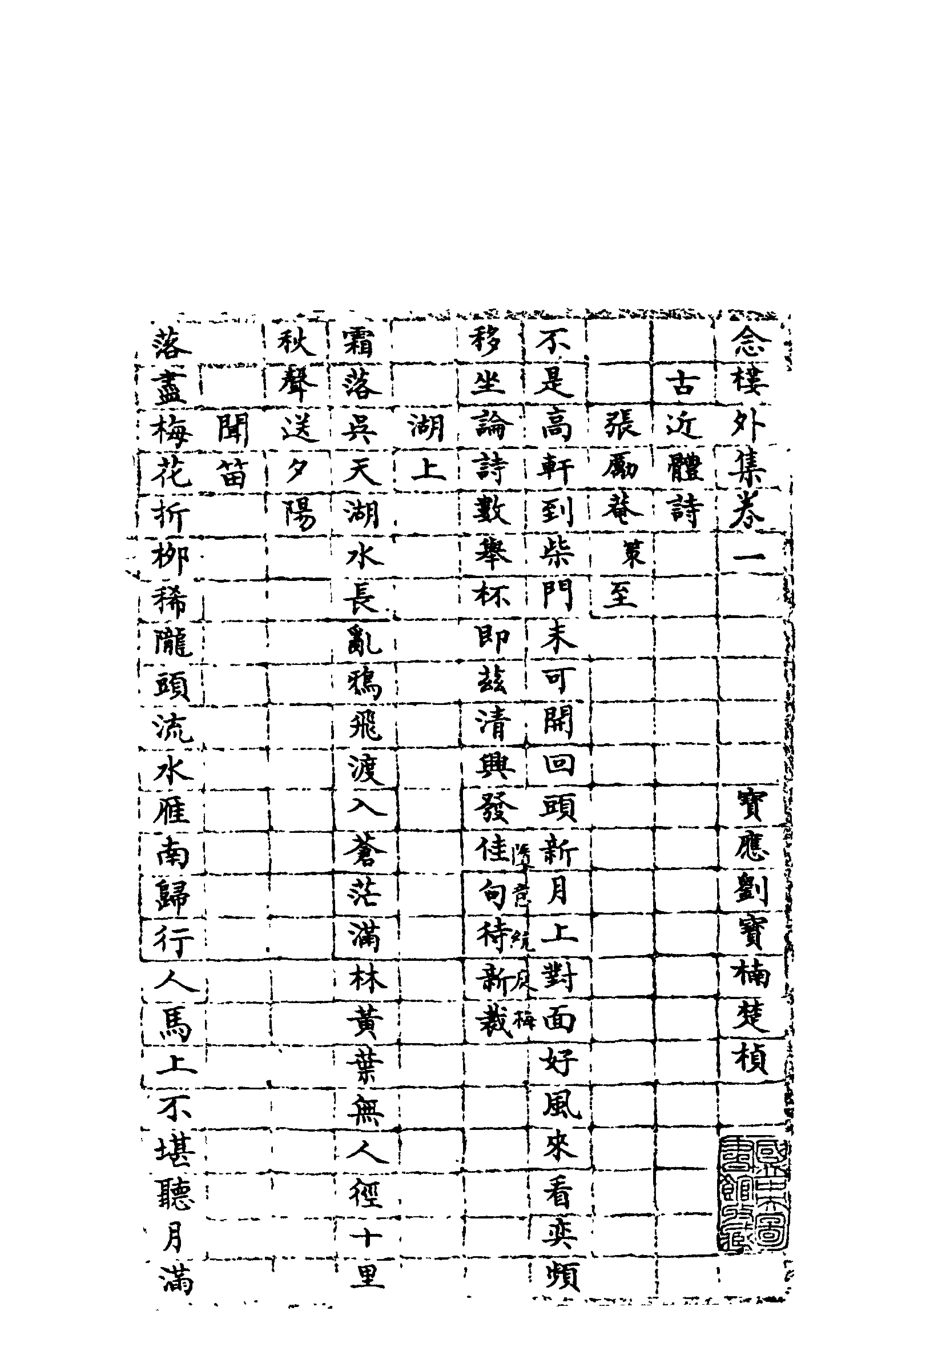 念樓外集卷一
寶應劉寶楠楚楨
國立中央圖書館收藏
古近體詩
張勵菴策至
不是高軒到柴門未可開回頭新月上對面好風來看奕頻
移坐論詩數舉杯即兹清興發佳句待新裁
湖上
霜落吳天湖水長亂鴉飛渡入蒼茫滿林黃葉無人徑十里
秋聲送夕陽
聞笛
落盡梅花折柳稀隴頭流水雁南歸行人馬上不堪聽月滿